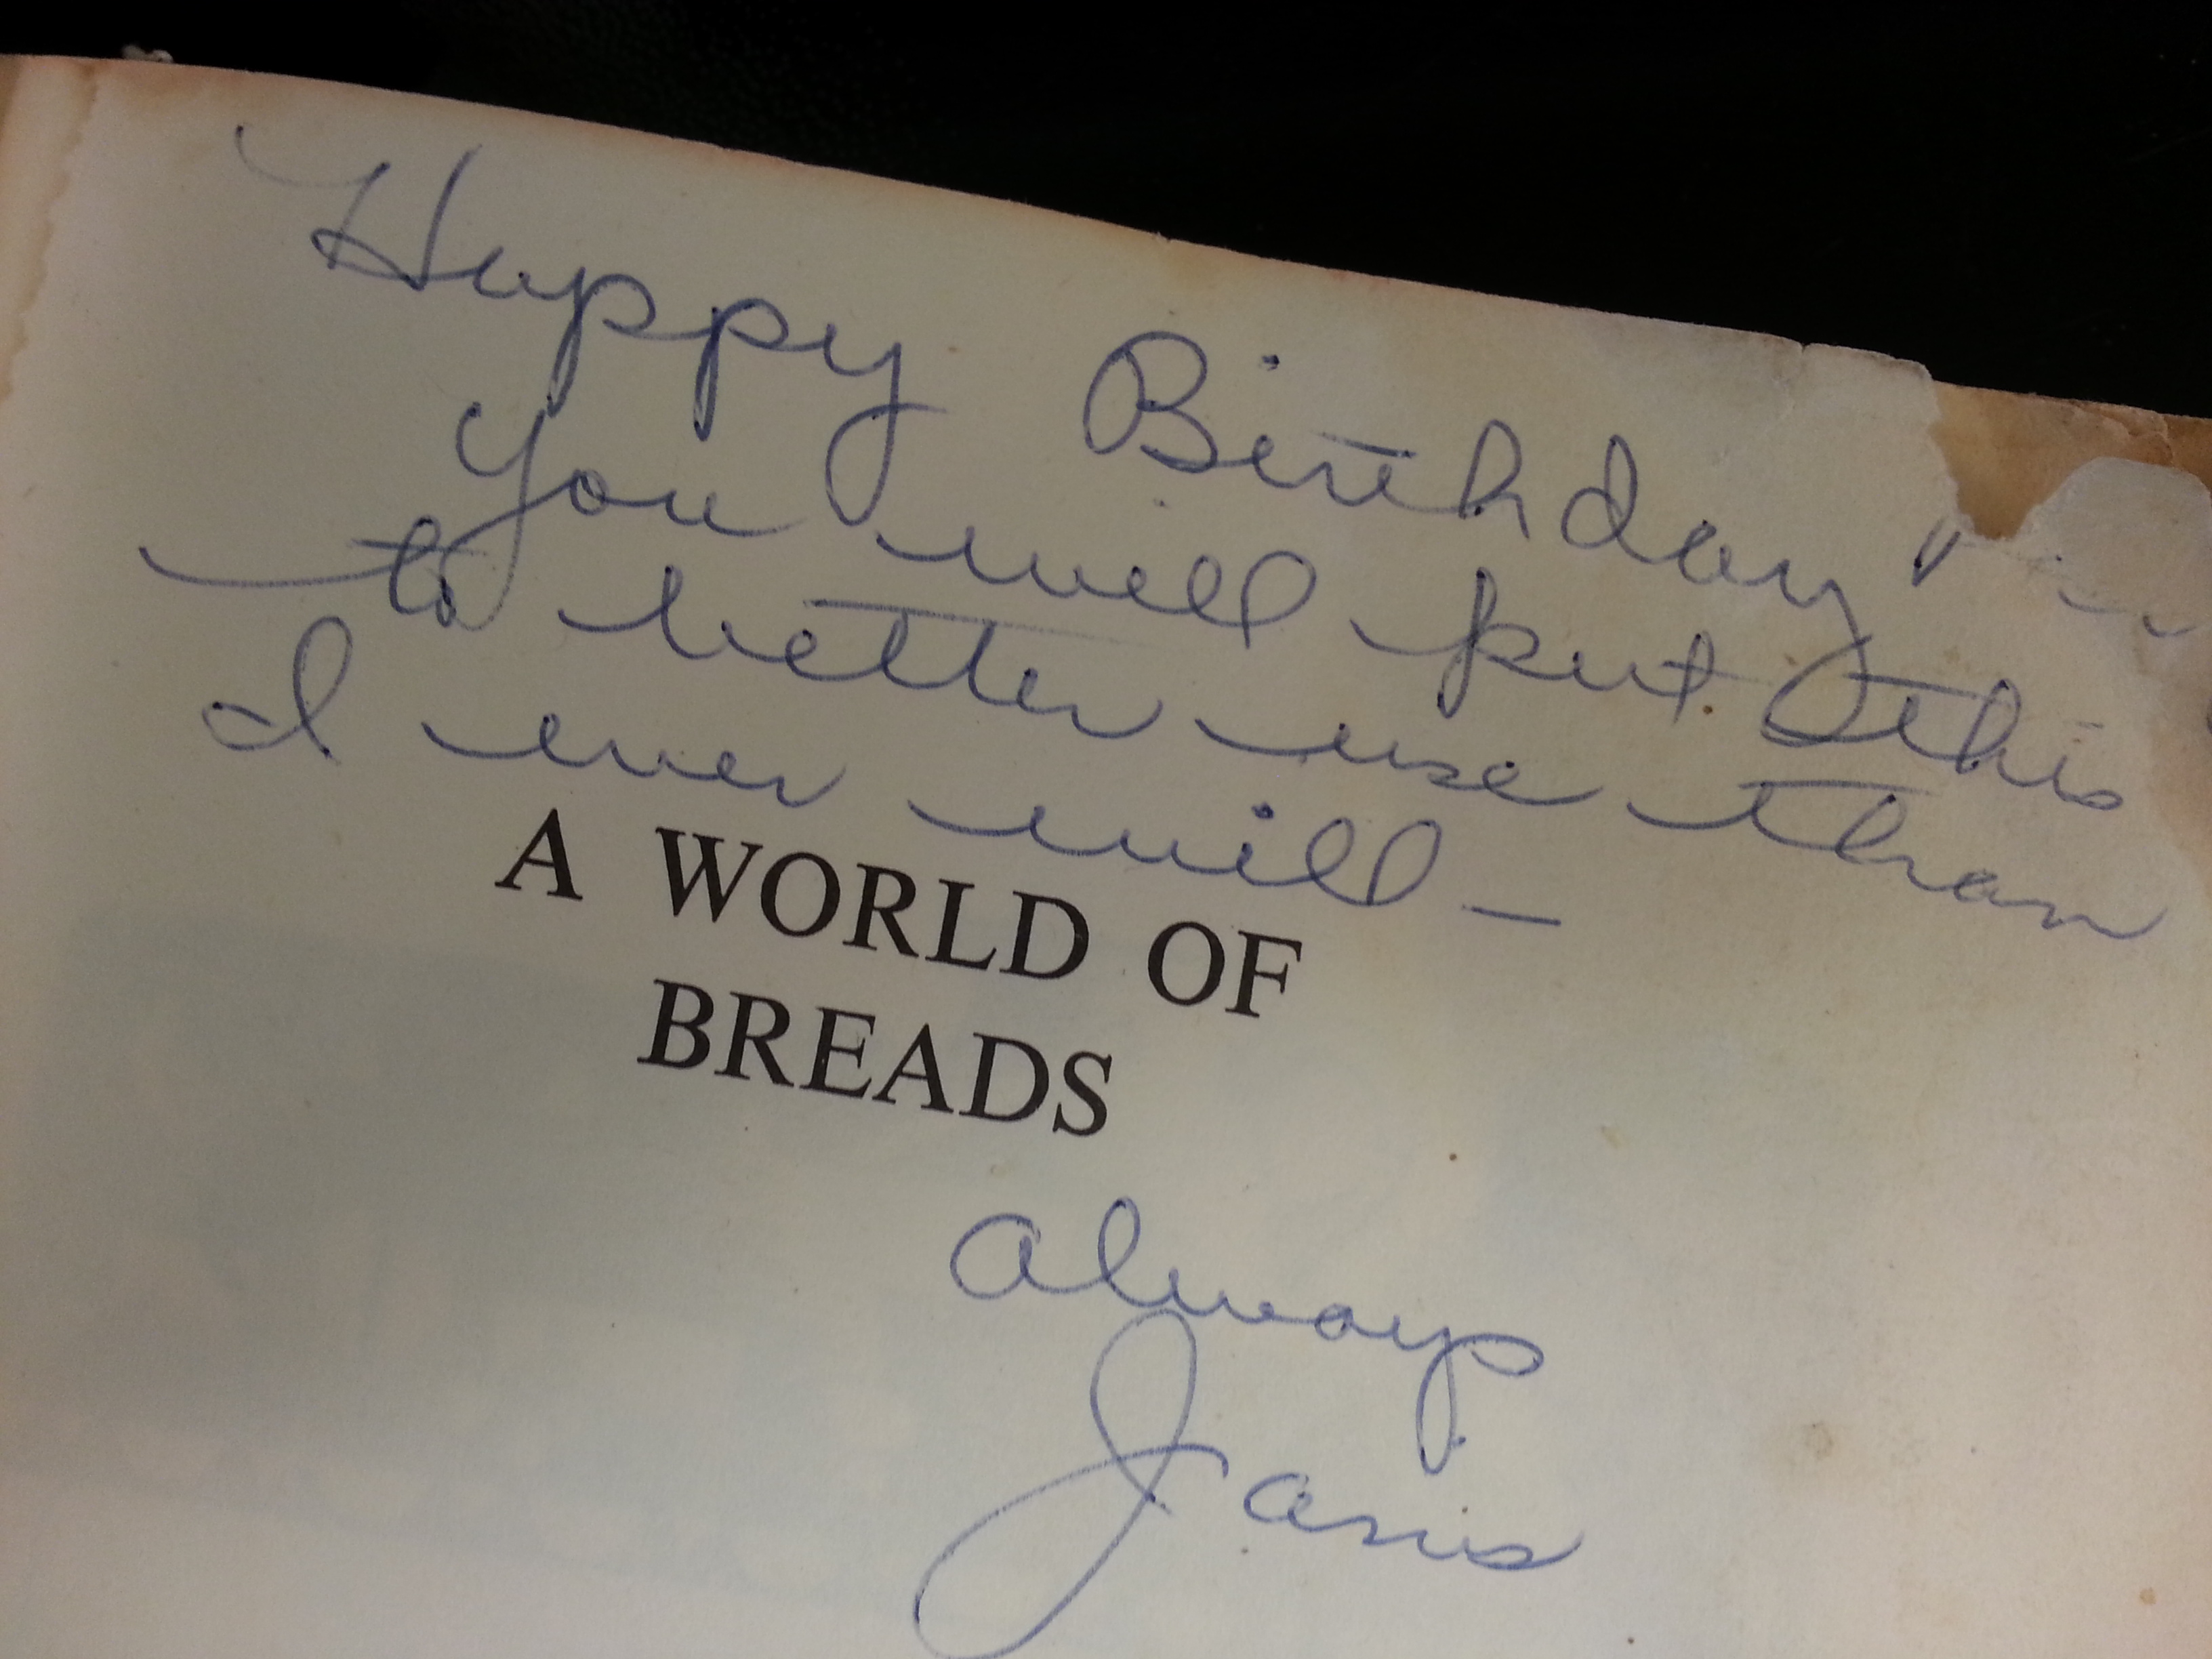 Happy Birthday
You will put this
to better use than
I ever will —
A WORLD OF
BREADS
Always
Janis